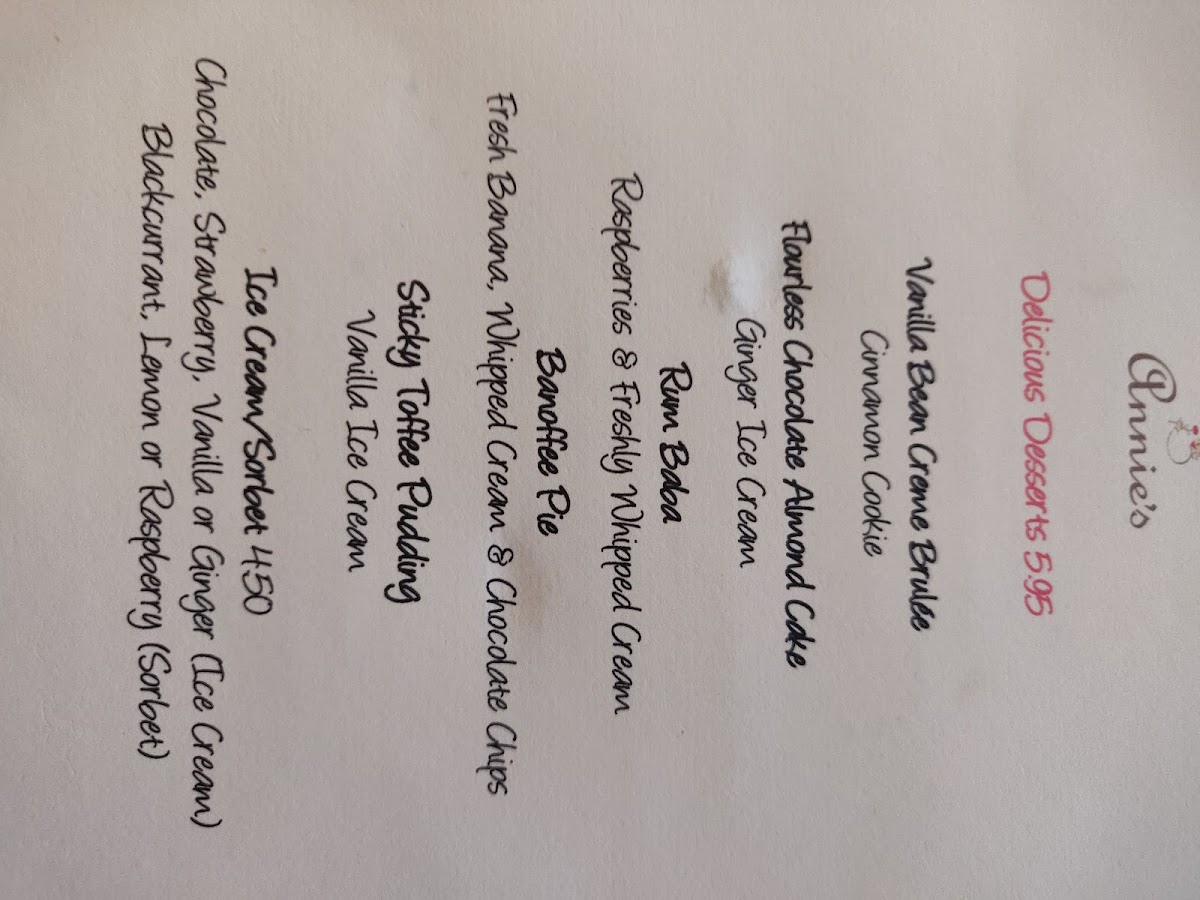 Annie's
Delicious Desserts 5.95
Vanilla Bean Creme Brulée
Cinnamon Cookie
Flourless Chocolate Almond Cake
Ginger Ice Cream
Rum Baba
Raspberries & Freshly Whipped Cream
Banoffee Pie
Fresh Banana, Whipped Cream & Chocolate Chips
Sticky Toffee Pudding
Vanilla Ice Cream
Ice Cream/Sorbet 4.50
Chocolate, Strawberry, Vanilla or Ginger (Ice Cream)
Blackcurrant, Lemon or Raspberry (Sorbet)